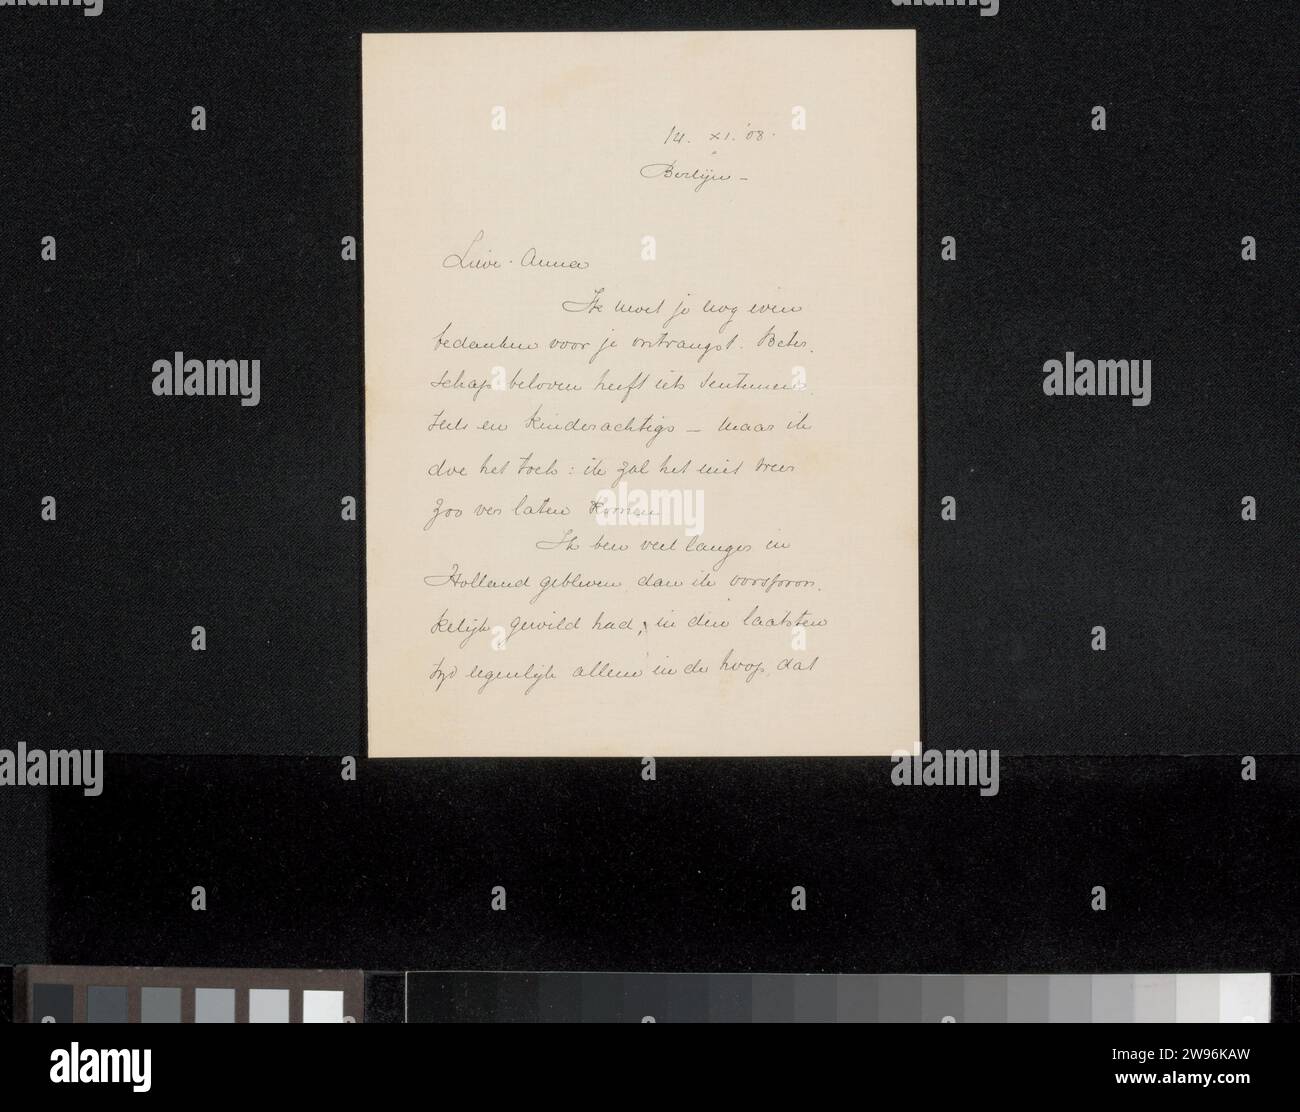 14. XI. '08.
Berlijn –
Lieve Anna
Ik moet je nog even
bedanken voor je ontvangst. Beter-
schap beloven heeft iets sentimen-
teels en kinderachtigs – maar ik
doe het toch: ik zal het niet weer
zoo ver laten komen
Ik ben veel langer in
Holland gebleven dan ik oorspron-
kelijk gewild had, in den laatsten
tijd eigenlijk alleen in de hoop, dat
alamy
Image ID: 2W96KAW
www.alamy.com